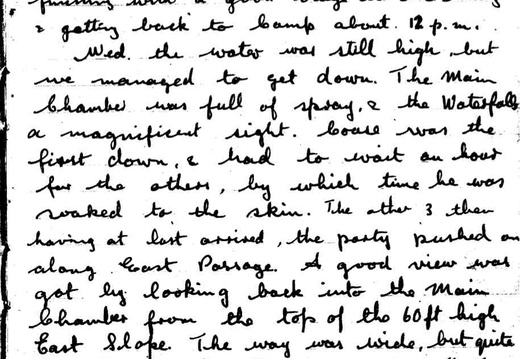 finishing with a good
& getting back to Camp about 12 p.m.
Wed. the water was still high, but
we managed to get down. The Main
Chamber was full of spray, & the Waterfalls
a magnificent sight. Coase was the
first down, & had to wait an hour
for the others, by which time he was
soaked to the skin. The other 3 then
having at last arrived, the party pushed on
along East Passage. A good view was
got by looking back into the Main
Chamber from the top of the 60ft high
East Slope. The way was wide, but quite